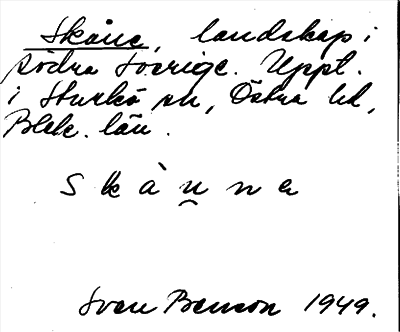 Skåne, landskap i
södra Sverige. Uppt.
i Sturkö sn, Östra hd,
Blek. län.
S k å u̯ n a
Sven Benson 1949.